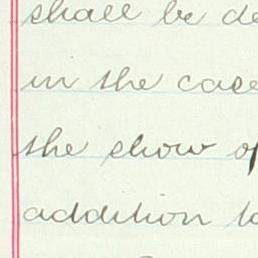 shall be de
in the case
the show of
addition to